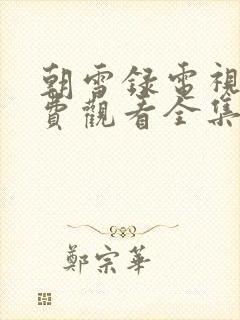 朝雪錄電視
費觀看全集
鄭宗華